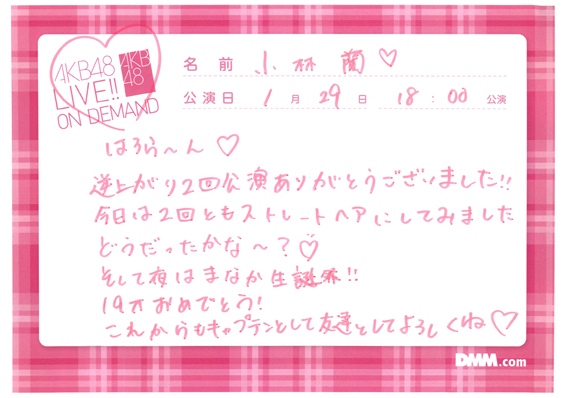 AKB48
LIVE!!
ON DEMAND
AKB
48
名前 小林蘭♡
公演日 1月29日 18:00公演
はろら〜ん♡
逆上がり2回公演ありがとうございました!!
今日は2回ともストレートヘアにしてみました
どうだったかな〜?♡
そして夜はまなか生誕祭!!
19才おめでとう!
これからもキャプテンとして友達としてよろしくね♡
DMM.com